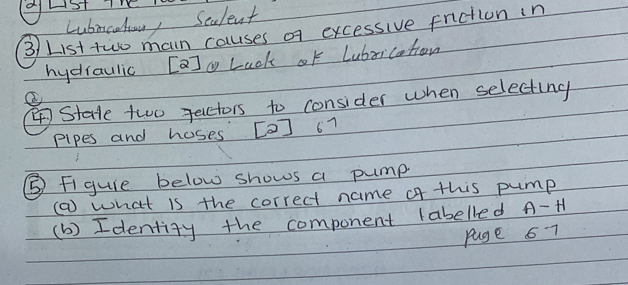 2) List the
Lubrication, Sealent
3) List two main causes of excessive friction in
hydraulic [2] Lack of Lubrication
4) State two factors to consider when selecting
Pipes and hoses [2] 67
5) Figure below shows a pump
(a) what is the correct name of this pump
(b) Identify the component labelled A-H
Page 67